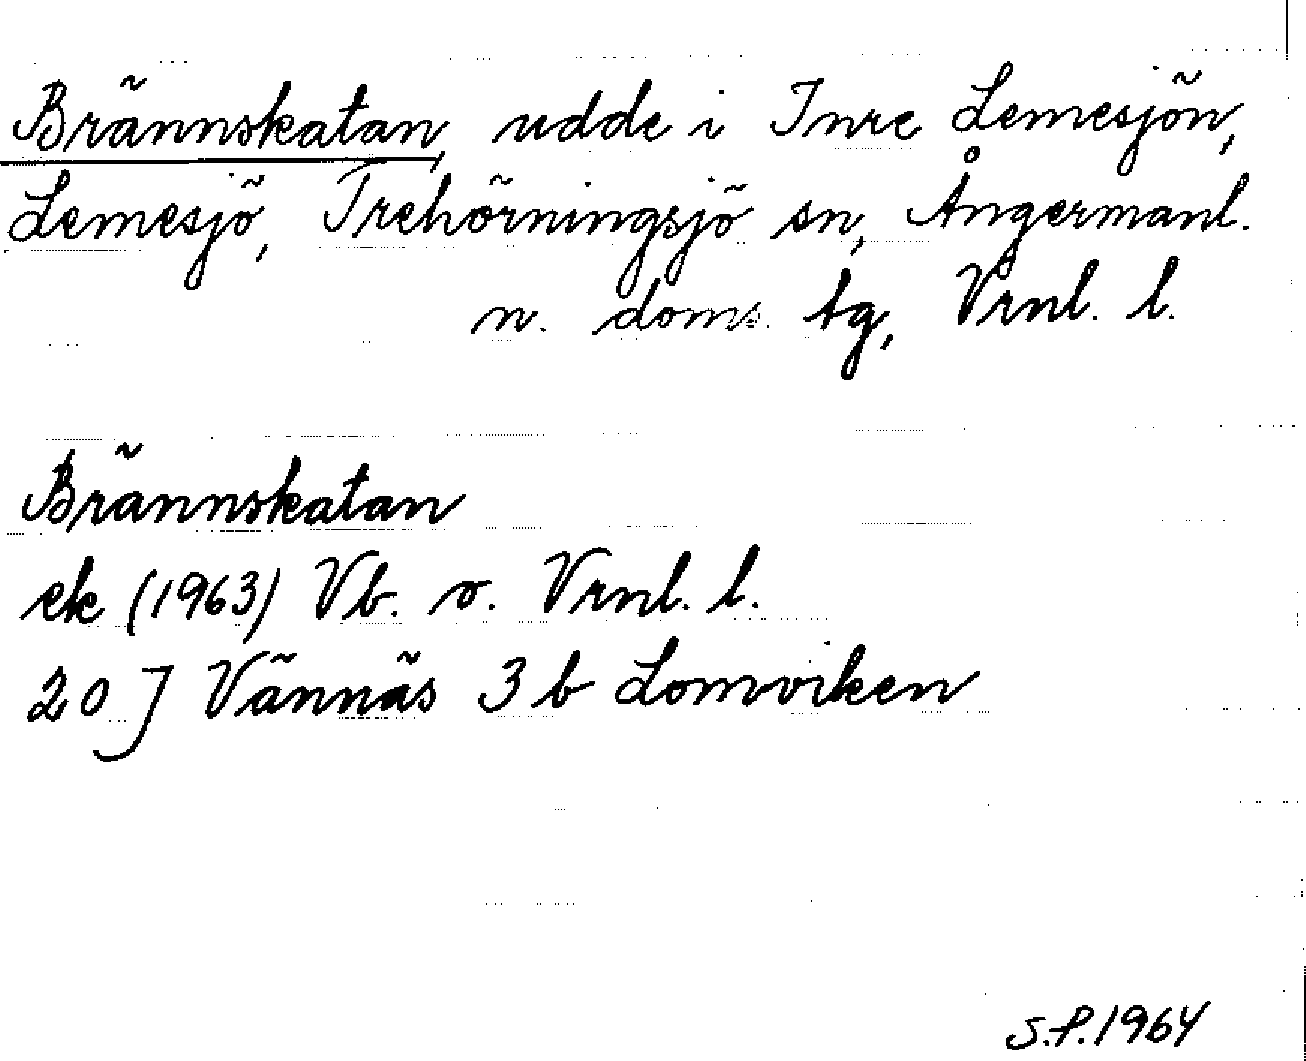 Brännskatan, udde i Inre Lemesjön,
Lemesjö, Trehörningsjö sn, Ångermanl.
n. doms. tg, Vrnl. l.
Brännskatan
ek (1963) Vb. o. Vrnl. l.
20 J Vännäs 3 b Lomviken
S.P. 1964